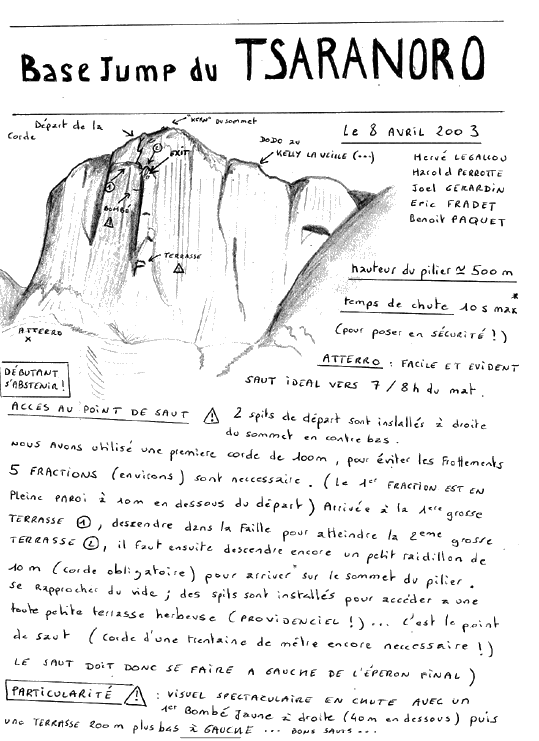 Base Jump du TSARANORO
Départ de la
Corde
"KERN" DU SOMMET
DODO au
KELLY LA VEILLE (...)
Le 8 AVRIL 2003
Hervé LEGALLOU
Harold PERROTTE
Joel GERARDIN
Eric FRADET
Benoit PAQUET
2
EXIT
1
BOMBÉ
TERRASSE
hauteur du pilier ≃ 500 m
temps de chute 10 s max *
(pour poser en SÉCURITÉ !)
ATTERRO
x
ATTERRO : FACILE ET EVIDENT
DÉBUTANT
S'ABSTENIR !
SAUT IDEAL VERS 7 / 8h du mat.
ACCÈS AU POINT DE SAUT ⚠ 2 spits de départ sont installés à droite
du sommet en contre bas.
NOUS AVONS UTILISÉ UNE PREMIERE CORDE DE 100m, pour éviter les Frottements
5 FRACTIONS (environs) sont neccessaire. (Le 1er FRACTION EST EN
Pleine PAROI à 10m en dessous du départ) Arrivée à la 1ere grosse
TERRASSE ①, descendre dans la Faille pour atteindre la 2eme grosse
TERRASSE ②, il faut ensuite descendre encore un petit raidillon de
10 m (corde obligatoire) pour arriver sur le sommet du pilier.
se rapprocher du vide ; des spits sont installés pour accéder a une
toute petite terrasse herbeuse (PROVIDENCIEL !) ... C'est le point
de saut (corde d'une trentaine de mètre encore neccessaire !)
LE SAUT DOIT DONC SE FAIRE A GAUCHE DE L'ÉPERON FINAL)
PARTICULARITÉ ⚠ : VISUEL SPECTACULAIRE EN CHUTE AVEC UN
1er Bombé Jaune à droite (40m en dessous) puis
une TERRASSE 200 m plus bas à GAUCHE ... BONS SAUTS ...